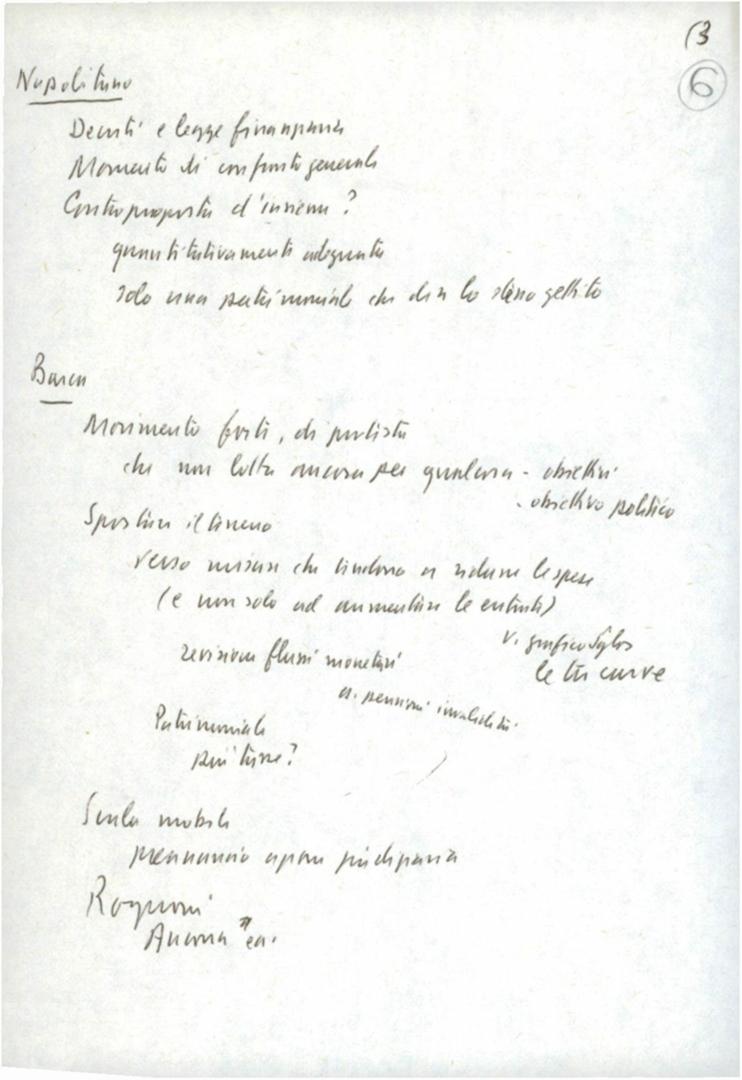 13
6
Napolitano
Decreti e legge finanziaria
Momento di confronto generale
Controproposta d'insieme?
quantitativamente adeguata
Solo una patrimoniale che dia lo stesso gettito
Barca
Movimento forte, di protesta
che non lotta ancora per qualcosa - obiettivi
- obiettivo politico
Spostare il terreno
verso misure che tendono a ridurre le spese
(e non solo ad aumentare le entrate)
v. grafico Sylos
le tre curve
revisione flussi monetari
a. pensioni invalidità
Patrimoniale
più tasse?
Scala mobile
preannuncio
Rognoni
Ancora